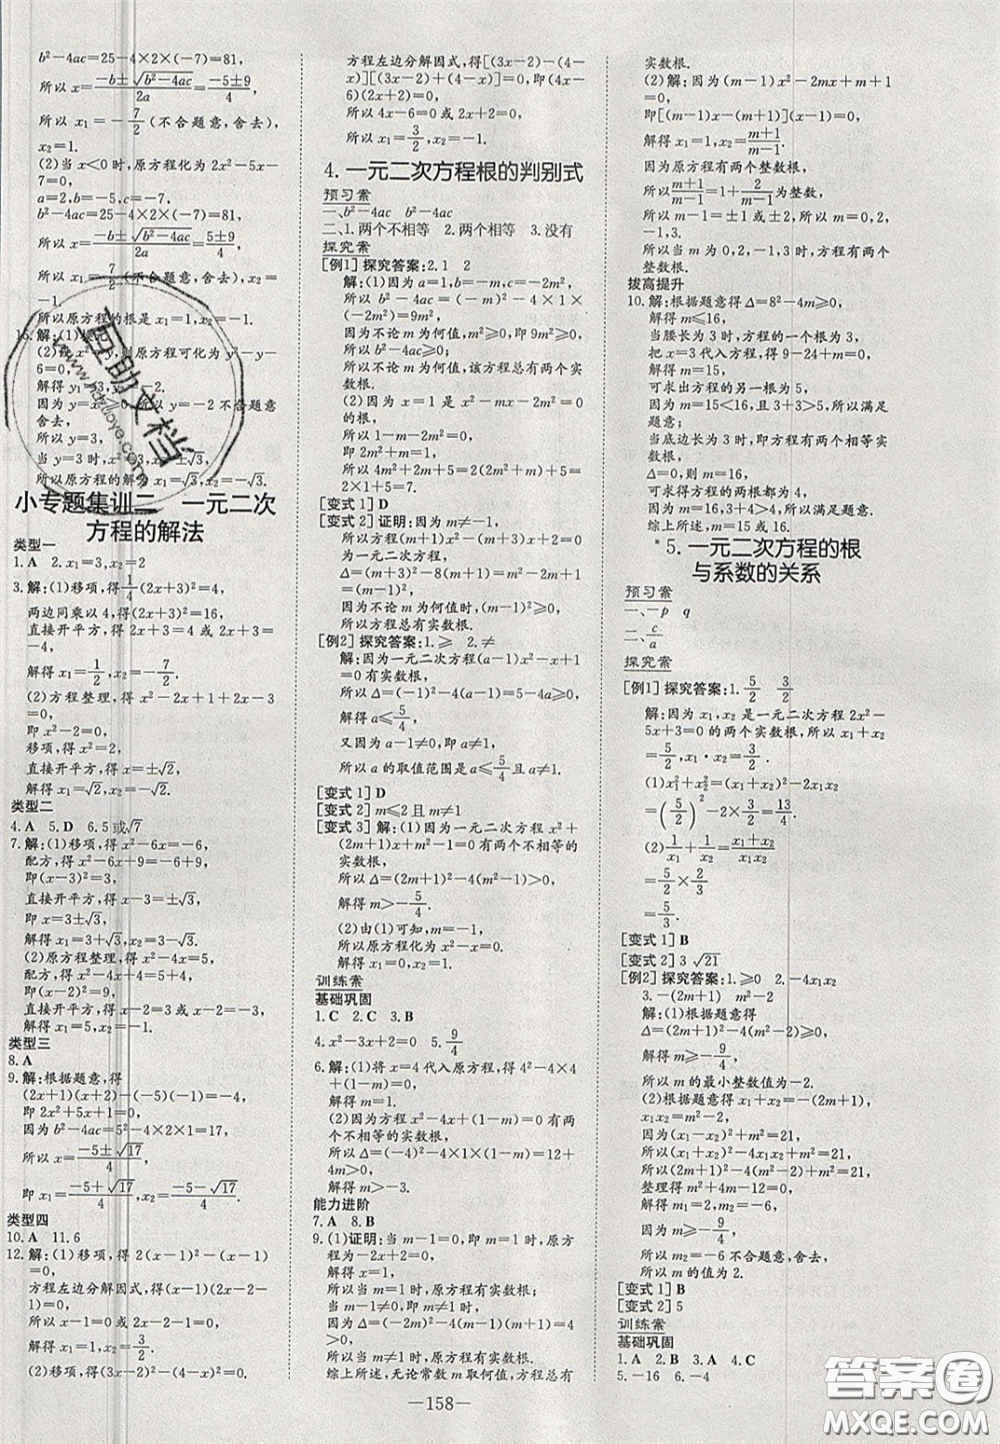 b²－4ac=25－4×2×(－7)=81,
所以 x=(－b±√(b²－4ac))/2a=(－5±9)/4,
所以 x₁=－7/2(不合题意,舍去),
x₂=1.
(2)当 x<0 时,原方程化为 2x²－5x－
7=0,
a=2,b=－5,c=－7,
b²－4ac=25－4×2×(－7)=81,
所以 x=(－b±√(b²－4ac))/2a=(5±9)/4,
所以 x₁=7/2(不合题意,舍去),x₂=
－1.
所以原方程的根是 x₁=1,x₂=－1.
解得 y₁=3,y₂=－2.
因为 y=x²≥0,所以 y=－2 不合题意
舍去,
所以 y=3,
当 y=3 时,x²=3,x=±√3.
所以原方程的解为 x₁=√3,x₂=－√3.
小专题集训二　一元二次
方程的解法
类型一
1.A　2.x₁=3,x₂=2
3.解:(1)移项,得1/4(2x+3)²=4,
两边同乘以 4,得(2x+3)²=16,
直接开平方,得 2x+3=4 或 2x+3=
－4,
解得 x₁=1/2,x₂=－7/2.
(2)方程整理,得 x²－2x+1+2x－3
=0,
即 x²－2=0,
移项,得 x²=2,
直接开平方,得 x=±√2,
解得 x₁=√2,x₂=－√2.
类型二
4.A　5.D　6.5或√7
7.解:(1)移项,得 x²－6x=－6,
配方,得 x²－6x+9=－6+9,
即(x－3)²=3,
直接开平方,得 x－3=±√3,
即 x=3±√3,
解得 x₁=3+√3,x₂=3－√3.
(2)原方程整理,得 x²－4x=5,
配方,得 x²－4x+4=5+4,
即(x－2)²=9,
直接开平方,得 x－2=3 或 x－2=－3,
解得 x₁=5,x₂=－1.
类型三
8.A
9.解:根据题意,得
(2x+1)(x+2)－(－5)(－1)=－4,
即 2x²+5x+1=0,
因为 b²－4ac=5²－4×2×1=17,
所以 x=(－5±√17)/4,
即 x₁=(－5+√17)/4,x₂=(－5－√17)/4.
类型四
10.A　11.6
12.解:(1)移项,得 2(x－1)²－(x－1)
=0,
方程左边分解因式,得(x－1)(2x－3)
=0,
所以 x－1=0 或 2x－3=0,
解得 x₁=1,x₂=3/2.
(2)移项,得(3x－2)²－(4－x)²=0,
方程左边分解因式,得[(3x－2)－(4－
x)][(3x－2)+(4－x)]=0,即(4x－
6)(2x+2)=0,
所以 4x－6=0 或 2x+2=0,
所以 x₁=3/2,x₂=－1.
4.一元二次方程根的判别式
预习案
一、b²－4ac　b²－4ac
二、1.两个不相等　2.两个相等　3.没有
探究案
[例1]探究答案:2.1　2
解:(1)因为 a=1,b=－m,c=－2m²,
所以 b²－4ac=(－m)²－4×1×
(－2m²)=9m²,
因为不论 m 为何值,m²≥0,即 9m²≥0,
所以 b²－4ac≥0,
因为不论 m 为何值,该方程总有两个实
数根.
(2)因为 x=1 是 x²－mx－2m²=0
的根,
所以 1－m－2m²=0,
即 2m²+m=1,
所以 4m²+2m+2018=2(2m²+m)+
2018=2×1+2018=2020.
[变式1]D
[变式2]证明:因为 m≠－1,
所以方程(m+1)x²+(m+3)x+2=0
为一元二次方程,
Δ=(m+3)²－8(m+1)=m²－2m+1
=(m－1)²,
因为不论 m 为何值,(m－1)²≥0,
所以方程总有实数根.
[例2]探究答案:1.≥　2.≠
解:因为一元二次方程(a－1)x²－x+1
=0有实数根,
所以 Δ=(－1)²－4(a－1)=5－4a≥0,
解得 a≤5/4,
又因为 a－1≠0,所以 a≠1,
所以 a 的取值范围是 a≤5/4且 a≠1.
[变式1]D
[变式2]m≤2且 m≠1
[变式3]解:(1)因为一元二次方程 x²+
(2m+1)x+m²－1=0有两个不相等的
实数根,
所以 Δ=(2m+1)²－4(m²－1)=4m+5
>0,
解得 m>－5/4.
(2)由(1)可知,m=－1,
所以原方程化为 x²－x=0,
解得 x₁=0,x₂=1.
训练案
基础巩固
1.C　2.C　3.B
4.x²－3x+2=0　5.9/4
6.解:(1)将 x=4代入原方程,得 4²－4×
4+1－m=0,
解得 m=1.
(2)因为方程 x²－4x+(1－m)=0有两
个不相等的实数根,
所以 Δ=(－4)²－4×1×(1－m)=12+
4m>0,
解得 m>－3.
能力进阶
7.A　8.B
9.(1)证明:当 m－1=0,即 m=1时,
－2x+2=0,
解得 x=1,
所以当 m=1时,原方程有实数根;
当 m－1≠0,即 m≠1时,
Δ=(－2m)²－4(m－1)(m+1)=4
>0,
所以当 m≠1时,原方程有实数根.
综上所述,无论常数 m 取何值,方程总有
实数根.
(2)解:因为(m－1)x²－2mx+m+1=
即[(m－1)x－(m+1)](x－1)=0,
解得 x₁=1,x₂=(m+1)/(m－1).
因为原方程有两个整数根,
所以(m+1)/(m－1)=1+2/(m－1)为整数,
所以 m－1=±1 或±2,所以 m=0,2,
－1,3.
所以当 m=0,2,－1,3时,方程有两个
整数根.
拔高提升
10.解:根据题意得 Δ=8²－4m≥0,
解得 m≤16,
当腰长为3时,方程的一个根为3,
把 x=3代入方程,得 9－24+m=0,
解得 m=15,
可求出方程的另一个根为5,
因为 m=15<16,且3+3>5,所以满足
题意;
当底边长为3时,即方程有两个相等的
实数根,
Δ=0,则 8²－4m=0,
解得 m=16,3+4>4,所以满足题意.
综上所述,m=15或16.
*5.一元二次方程的根
与系数的关系
预习案
一、－p　q
二、c/a
探究案
[例1]探究答案:1.5/2　3/2
解:因为 x₁,x₂是一元二次方程 2x²－
5x+3=0的两个实数根,所以 x₁+x₂
=5/2,x₁·x₂=3/2.
(1)x₁²+x₂²=(x₁+x₂)²－2x₁x₂
=(5/2)²－2×3/2=13/4.
(2)1/x₁+1/x₂=(x₁+x₂)/x₁x₂
=5/2×2/3
=5/3.
[变式1]B
[变式2]3　√21
[例2]探究答案:1.≥0　2.－4x₁x₂
3.－(2m+1)　m²－2
解:(1)根据题意得
Δ=(2m+1)²－4(m²－2)≥0,
解得 m≥－9/4,
所以 m 的最小整数值为－2.
(2)根据题意得 x₁+x₂=－(2m+1),
x₁x₂=m²－2,
因为(x₁－x₂)²+m²=21,
所以(x₁+x₂)²－4x₁x₂+m²=21,
所以(2m+1)²－4(m²－2)+m²=21,
整理得 m²+4m－12=0,
解得 m₁=2,m₂=－6,
因为 m≥－9/4,
所以 m₂=－6不合题意,舍去,
所以 m 的值为 2.
[变式1]B
[变式2]5
训练案
基础巩固
1.A　2.B　3.A　4.C
5.－16　6.－4
—158—
互助文档
答案圈
MXQE.COM